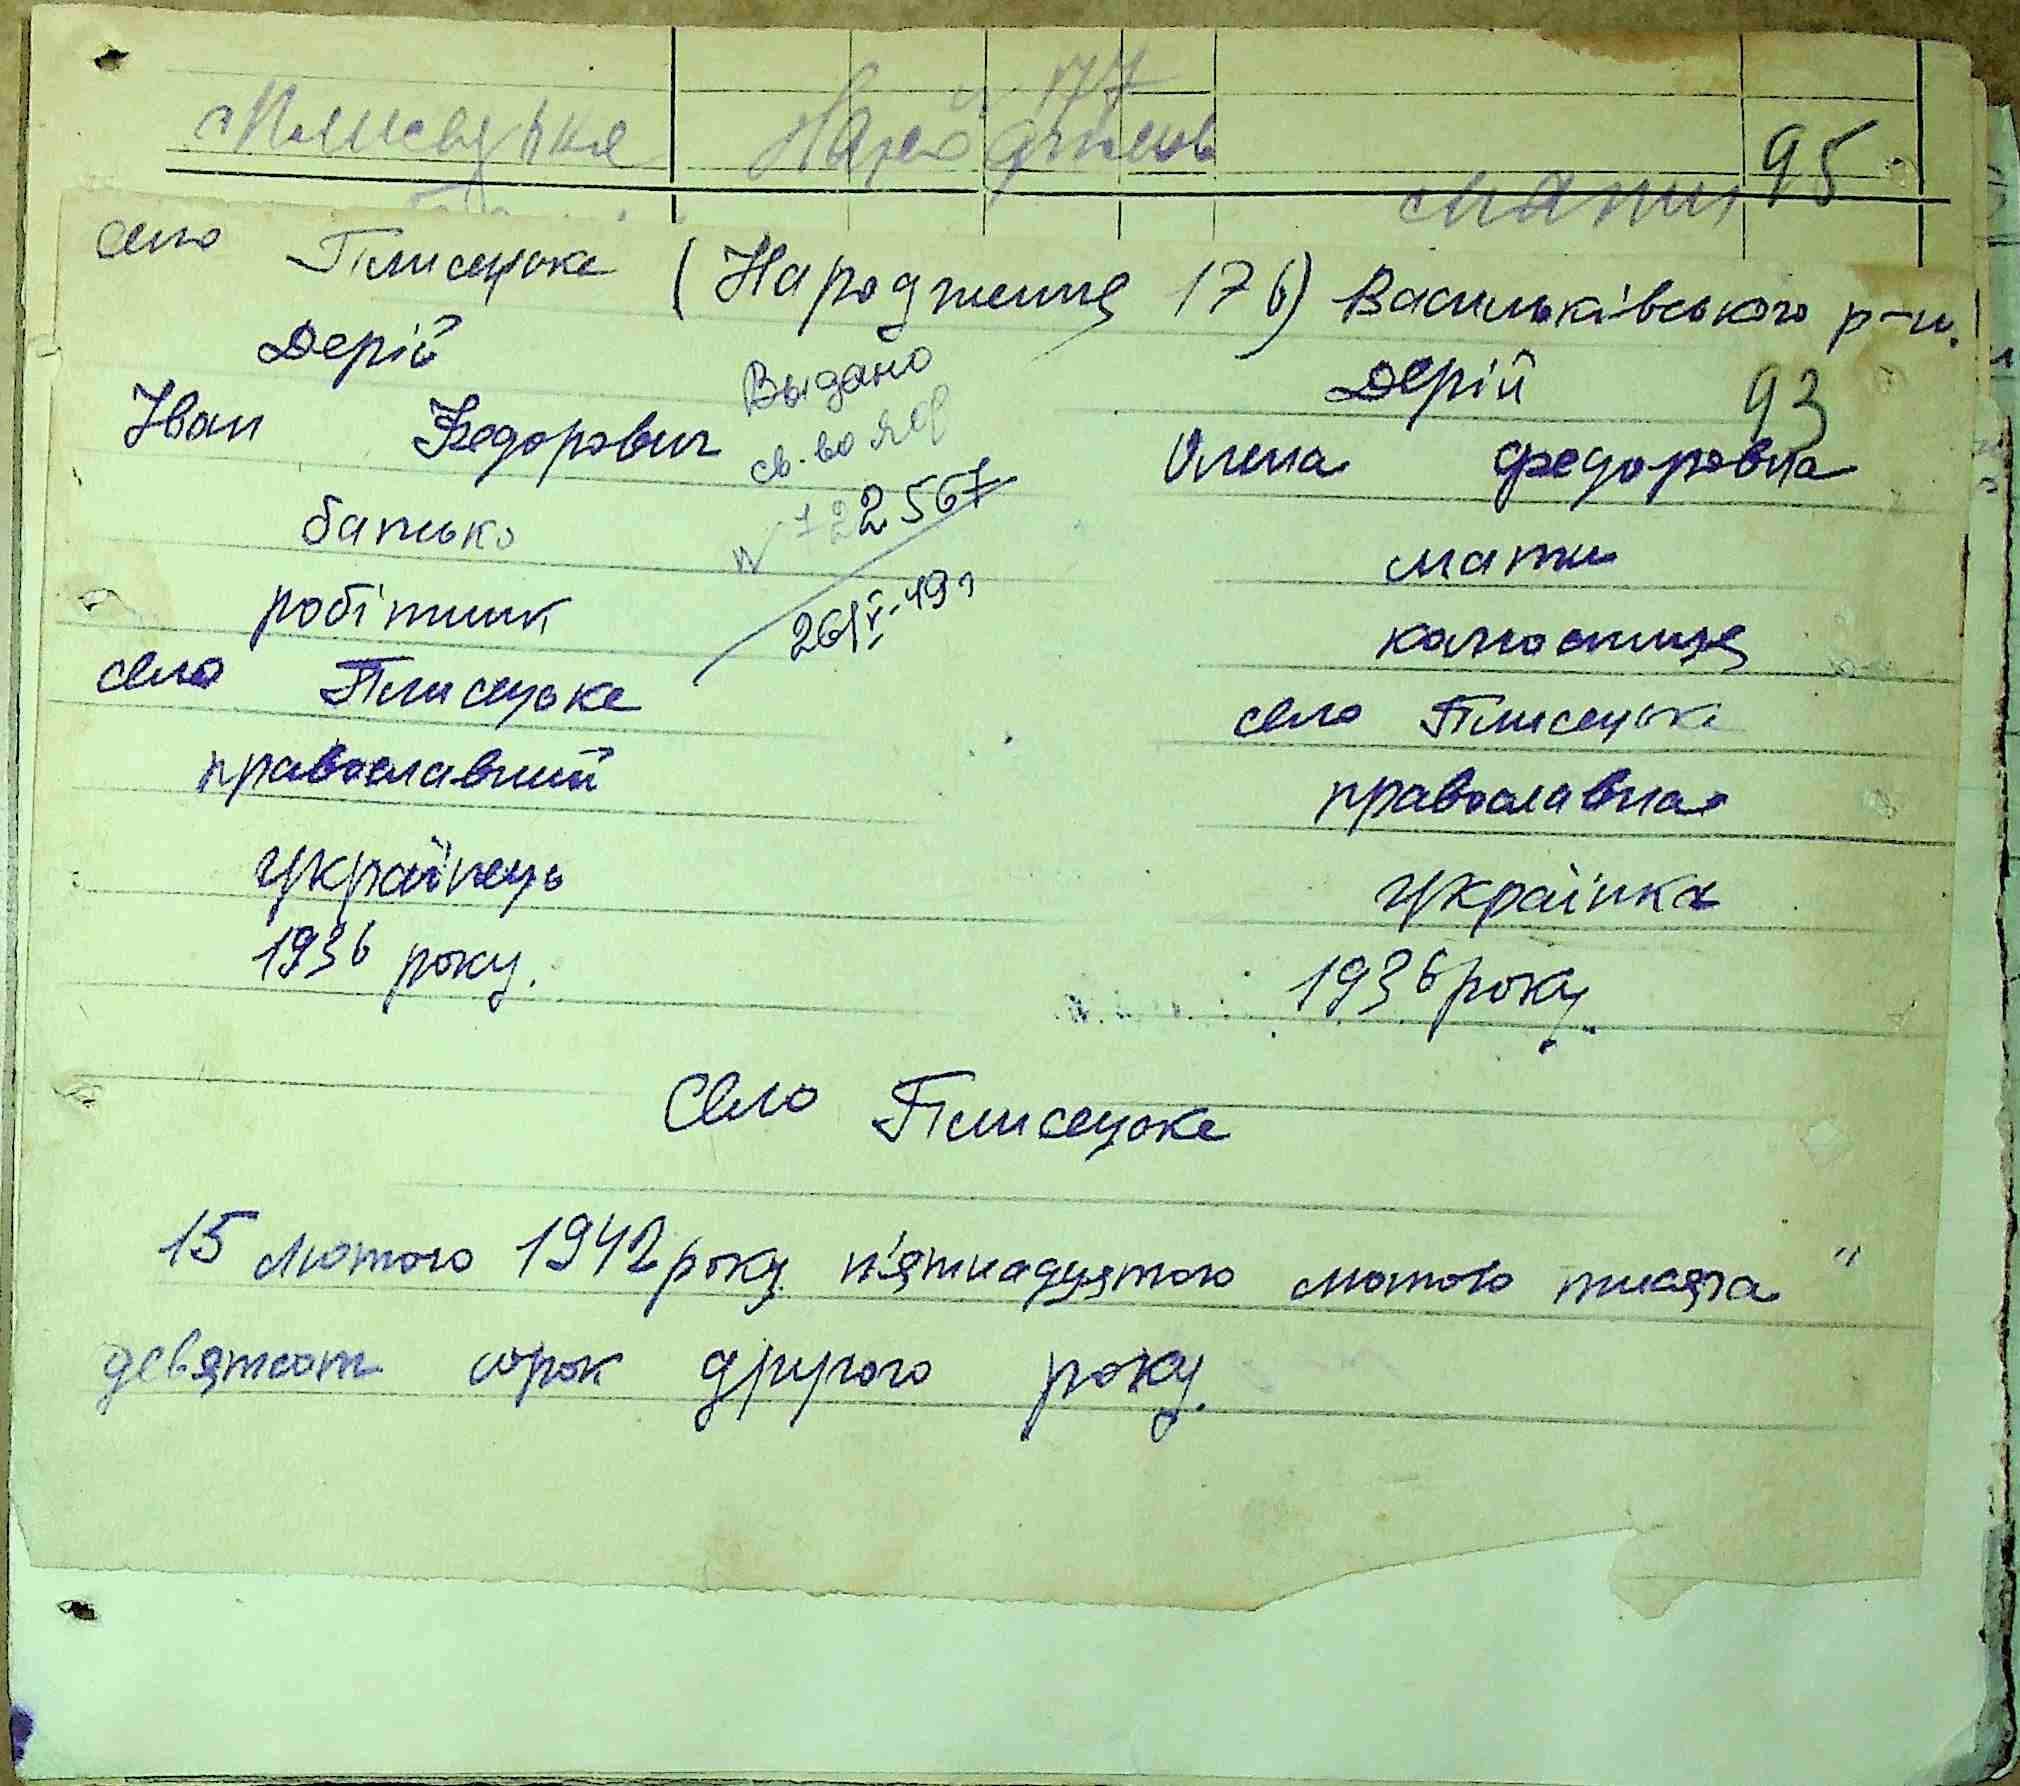 № 177
95
мати
село Плисецьке (Народження 176) Васильківського р-н.
Дерій
Іван Федорович
батько
робітник
село Плисецьке
православний
українець
1936 року.
Выдано
св.-во
№ 722567
26/V-49г
Дерій 93
Олена Федоровна
мати
колгоспниця
село Плисецьке
православна
українка
1936 року.
Село Плисецьке
15 лютого 1942 року п'ятнадцятого лютого тисяча "
девятсот сорок другого року.